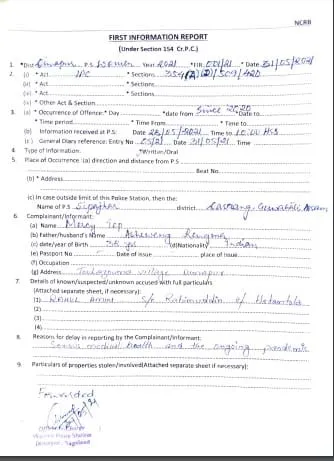 NCRB
FIRST INFORMATION REPORT
(Under Section 154 Cr.P.C.)
1. *Dist Dimapur P.S Women Year 2021 *FIR 001/21 * Date 31/05/2021
2. (i) * Act IPC * Sections 354(A)(D)/509/420
(ii) * Act * Sections
(iii) * Act * Sections
(iv) * Other Act & Section
3. (a) * Occurrence of Offence:* Day *date from Since 2020 *Date to
* Time period * Time From * Time to
(b) Information received at P.S: Date 28/05/2021 Time to 10:00 HSS
(c) General Diary reference: Entry No 05/21 Date 31/05/21 Time
4. Type of information: *Written/Oral
5. Place of Occurrence: (a) direction and distance from P.S
Beat No
(b) * Address
(c) In case outside limit of this Police Station, then the:
Name of P.S Sipajhar district Darrang, Guwahati, Assam
6. Complainant/Informant:
(a) Name Mercy
(b) Father/husband's Name Rengma
(c) date/year of Birth 38 yrs (d)Nationality Indian
(e) Passport No Date of issue place of issue
(f) Occupation
(g) Address village Dimapur
7. Details of known/suspected/unknown accused with full particulars
(Attached separate sheet, if necessary):
(1) RAHUL AMIN S/o Rahimuddin of
(2)
(3)
(4)
8. Reasons for delay in reporting by the Complainant/Informant:
Serious medical health and the ongoing pandemic
9. Particulars of properties stolen/involved(Attached separate sheet if necessary):
Forwarded
Women Police Station
Dimapur, Nagaland